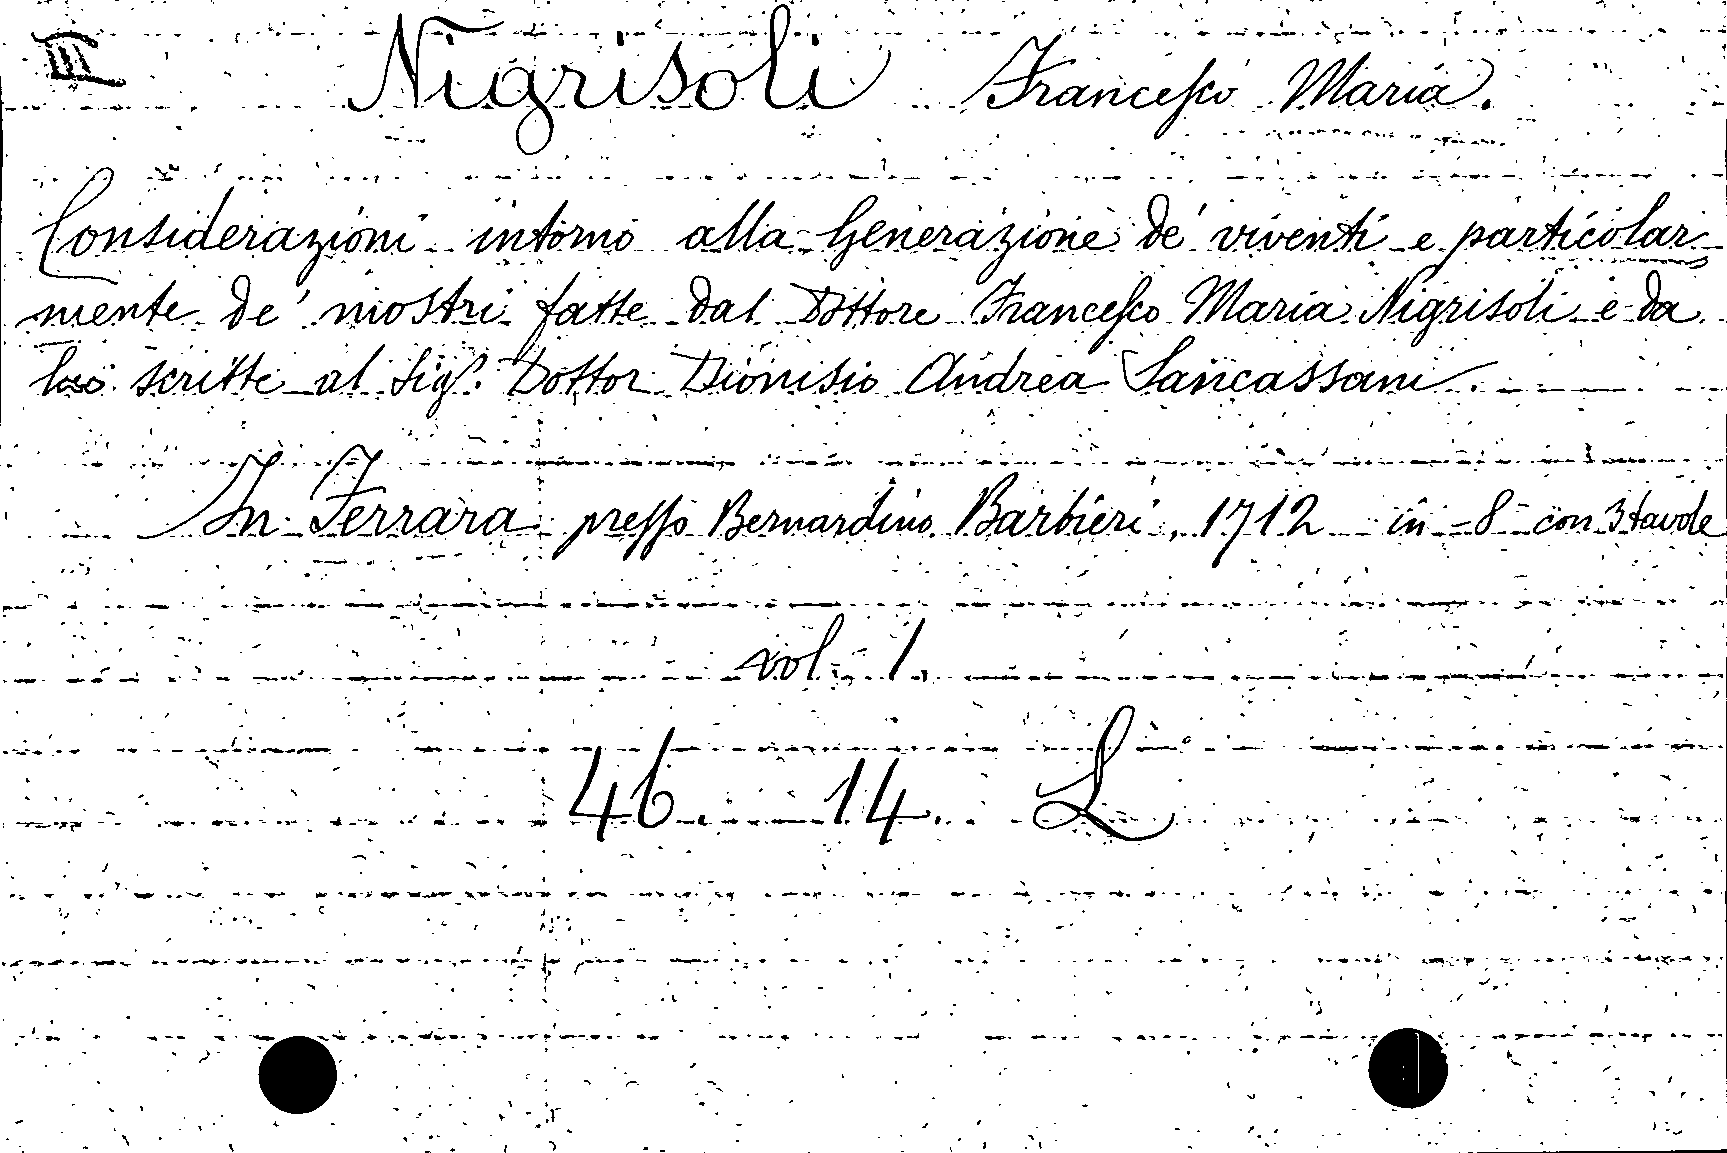 III
Nigrisoli Francesco Maria.
Considerazioni intorno alla Generazione de' viventi e particolar
mente de' mostri fatte dal Dottore Francesco Maria Nigrisoli e da
lui scritte al Sigr. Dottor Dionisio Andrea Sancassani.
In Ferrara presso Bernardino Barbieri, 1712 in-8 con 3 tavole
vol. 1.
46. 14. L